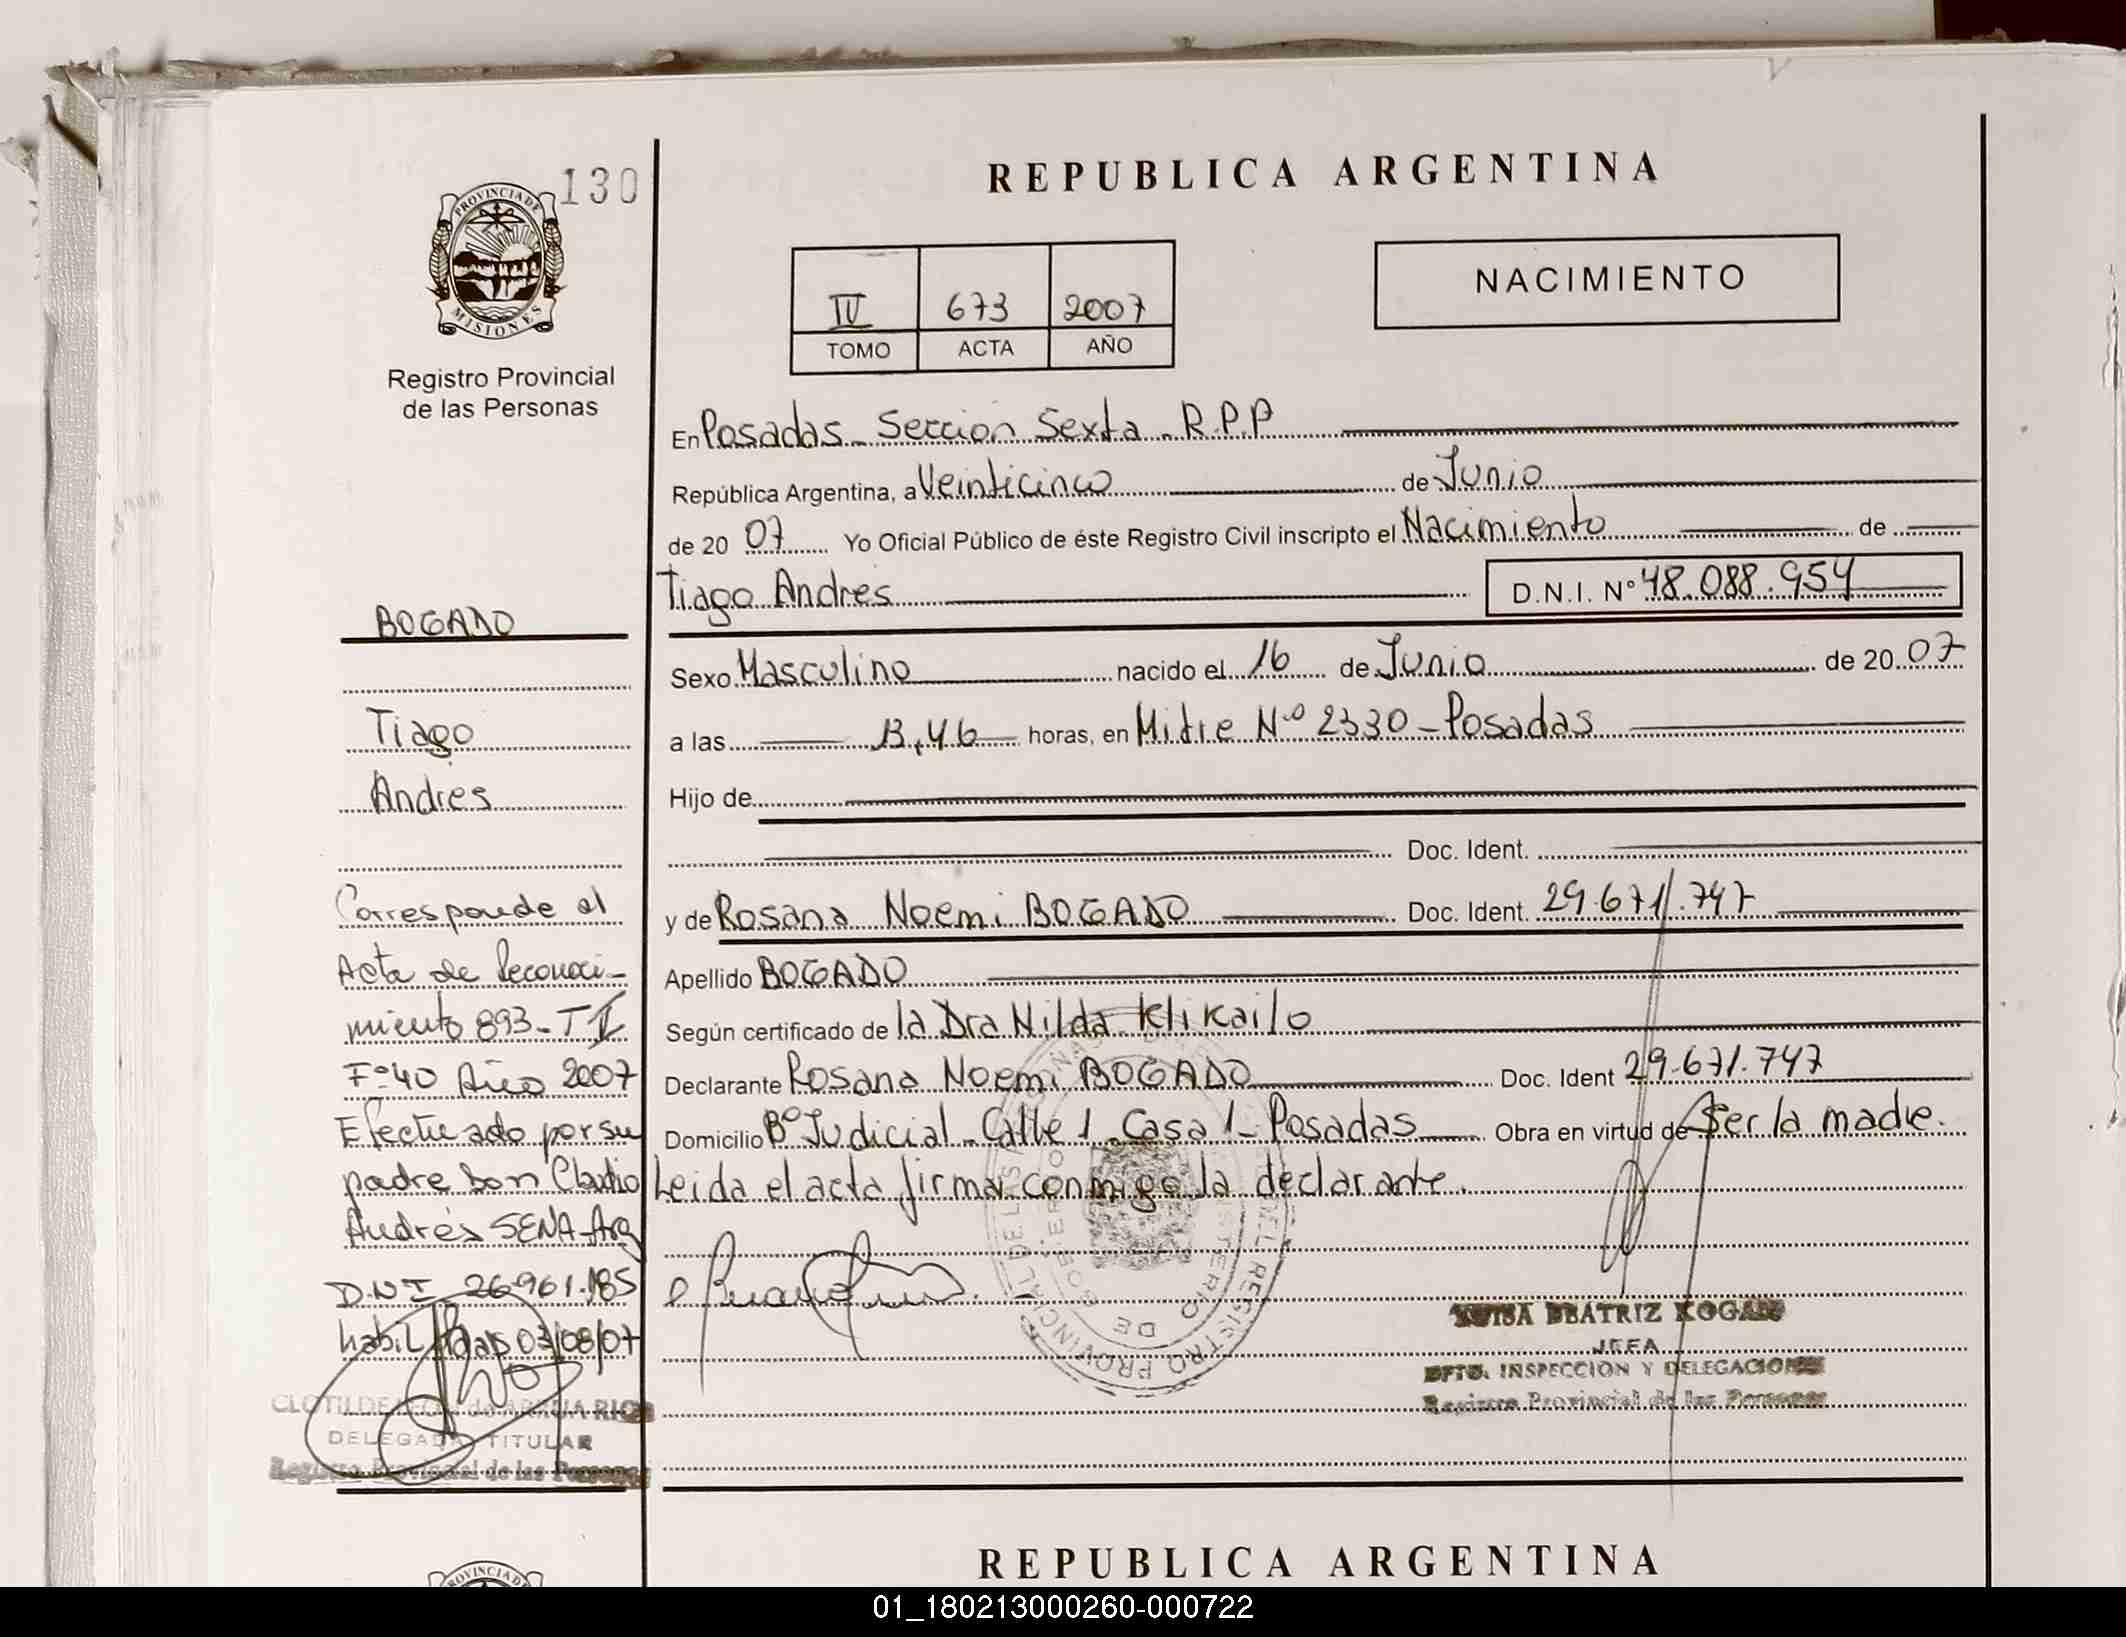 130
REPUBLICA ARGENTINA
PROVINCIA DE
MISIONES
Registro Provincial
de las Personas
IV 673 2007
TOMO ACTA AÑO
NACIMIENTO
En Posadas Sección Sexta R.P.P
República Argentina, a Veinticinco de Junio
de 20 07 Yo Oficial Público de éste Registro Civil inscripto el Nacimiento de
Tiago Andrés D.N.I. Nº 48.088.954
Sexo Masculino nacido el 16 de Junio de 20 07
a las 13,46 horas, en Mitre Nº 2330 - Posadas
Hijo de
Doc. Ident.
y de Rosana Noemi BOGADO Doc. Ident. 29.671.747
Apellido BOGADO
Según certificado de la Dra Nilda Klikailo
Declarante Rosana Noemi BOGADO Doc. Ident 29.671.747
Domicilio Bº Judicial Calle 1 Casa 1 - Posadas Obra en virtud de Ser la madre.
Leida el acta firma conmigo la declarante.
BOGADO
Tiago
Andres
Corresponde al
Acta de Reconoci-
miento 893 - T II
Fº 40 Año 2007
Efectuado por su
padre Don Claudio
Andrés SENA - Arg
D.N.I 26.961.185
habil 03/08/07
CLOTILDE
DELEGADA TITULAR
Registro Provincial de las Personas
LUISA BEATRIZ KOGAN
JEFA
DPTO. INSPECCION Y DELEGACIONES
Registro Provincial de las Personas
REPUBLICA ARGENTINA
01_180213000260-000722